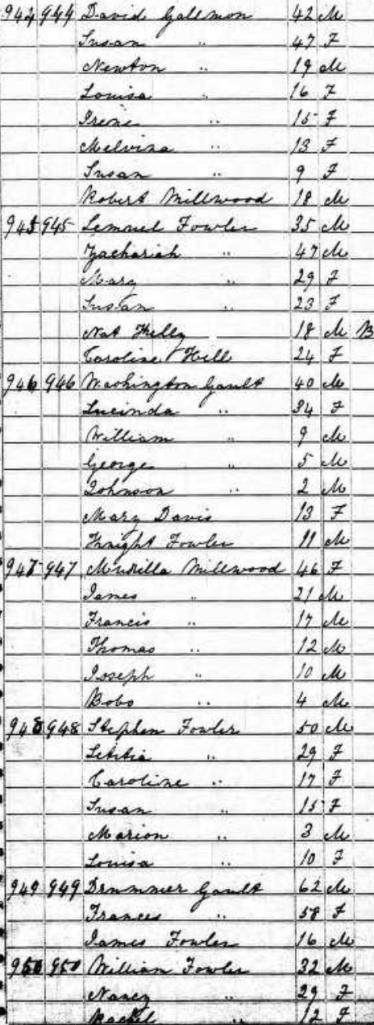 944 944 David Gallmon 42 M
Susan " 47 F
Newton " 19 M
Louisa " 16 F
Irene " 15 F
Melvina " 13 F
Susan " 9 F
Robert Millwood 18 M
945 945 Lemuel Fowler 35 M
Zachariah " 47 M
Mary " 29 F
Susan " 23 F
Nat Kelly 18 M B
Caroline Hill 24 F
946 946 Washington Gault 40 M
Lucinda " 34 F
William " 9 M
George " 5 M
Johnson " 2 M
Mary Davis 13 F
Knight Fowler 11 M
947 947 Millwood 46 F
James " 21 M
Francis " 17 M
Thomas " 12 M
Joseph " 10 M
Bobo " 4 M
948 948 Stephen Fowler 50 M
Letitia " 29 F
Caroline " 17 F
Susan " 15 F
Marion " 3 M
Louisa " 10 F
949 949 Drummer Gault 62 M
Frances " 58 F
James Fowler 16 M
950 950 William Fowler 32 M
Nancy " 29 F
Rachel " 12 F